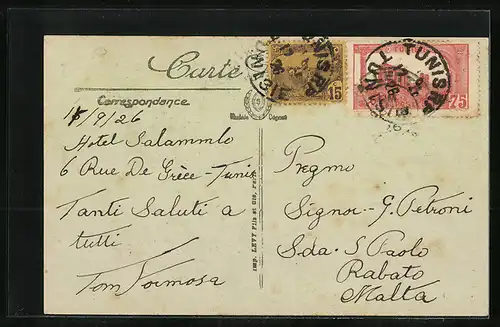 Carte
Correspondance
15/9/26
Hotel Salammbo
6 Rue De Grèce - Tunis
Tanti Saluti a
tutti
Tom Formosa
Imp. LEVY Fils et Cie, Paris
15
TUNIS RP
75
TUNIS RP
Pregmo
Signor G. Petroni
Sda. S. Paolo
Rabato
Malta